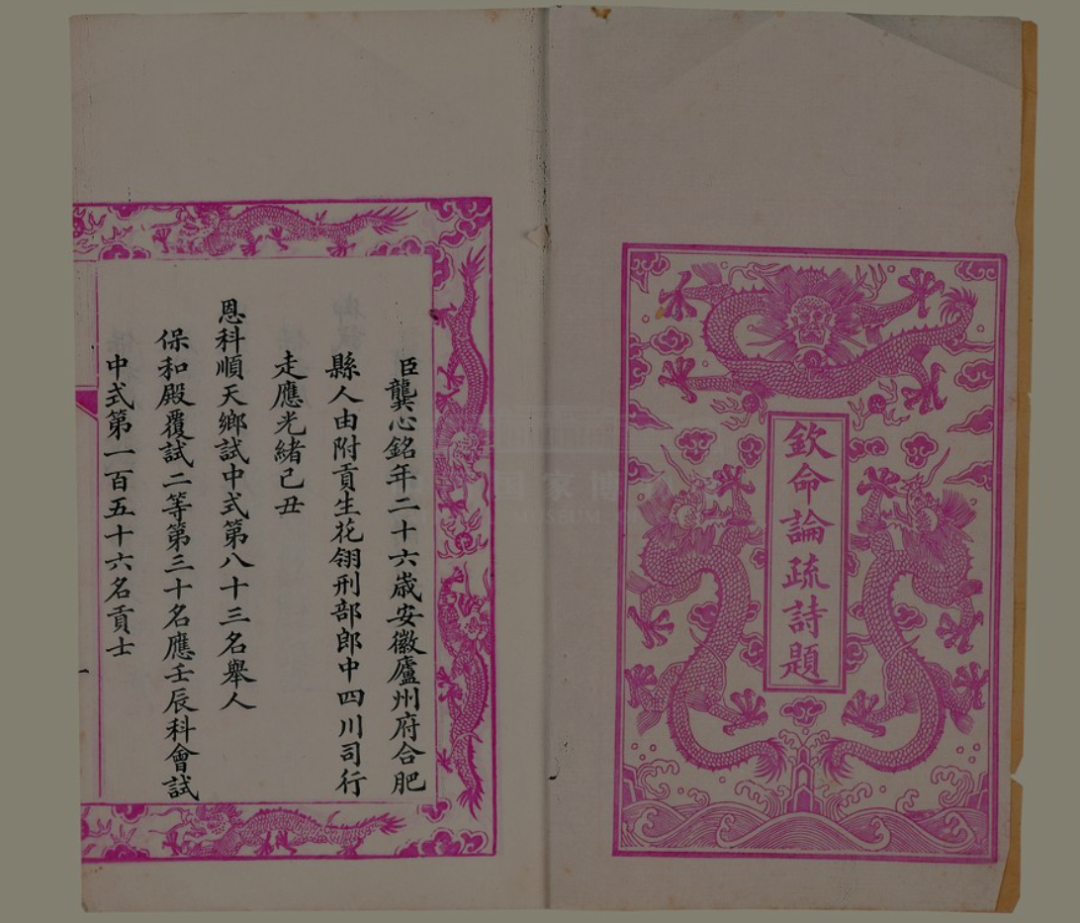 欽命論疏詩題
臣龔心銘年二十六歲安徽廬州府合肥
縣人由附貢生花翎刑部郎中四川司行
走應光緒己丑
恩科順天鄉試中式第八十三名舉人
保和殿覆試二等第三十名應壬辰科會試
中式第一百五十六名貢士
一